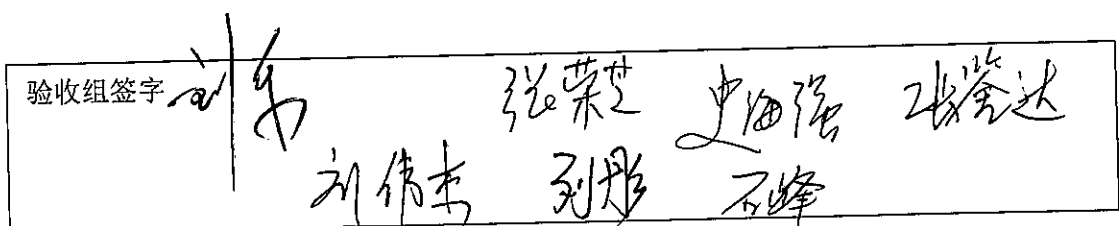 验收组签字 刘东 张荣芝 史海强 张鉴达
刘伟杰 刘彤 石峰